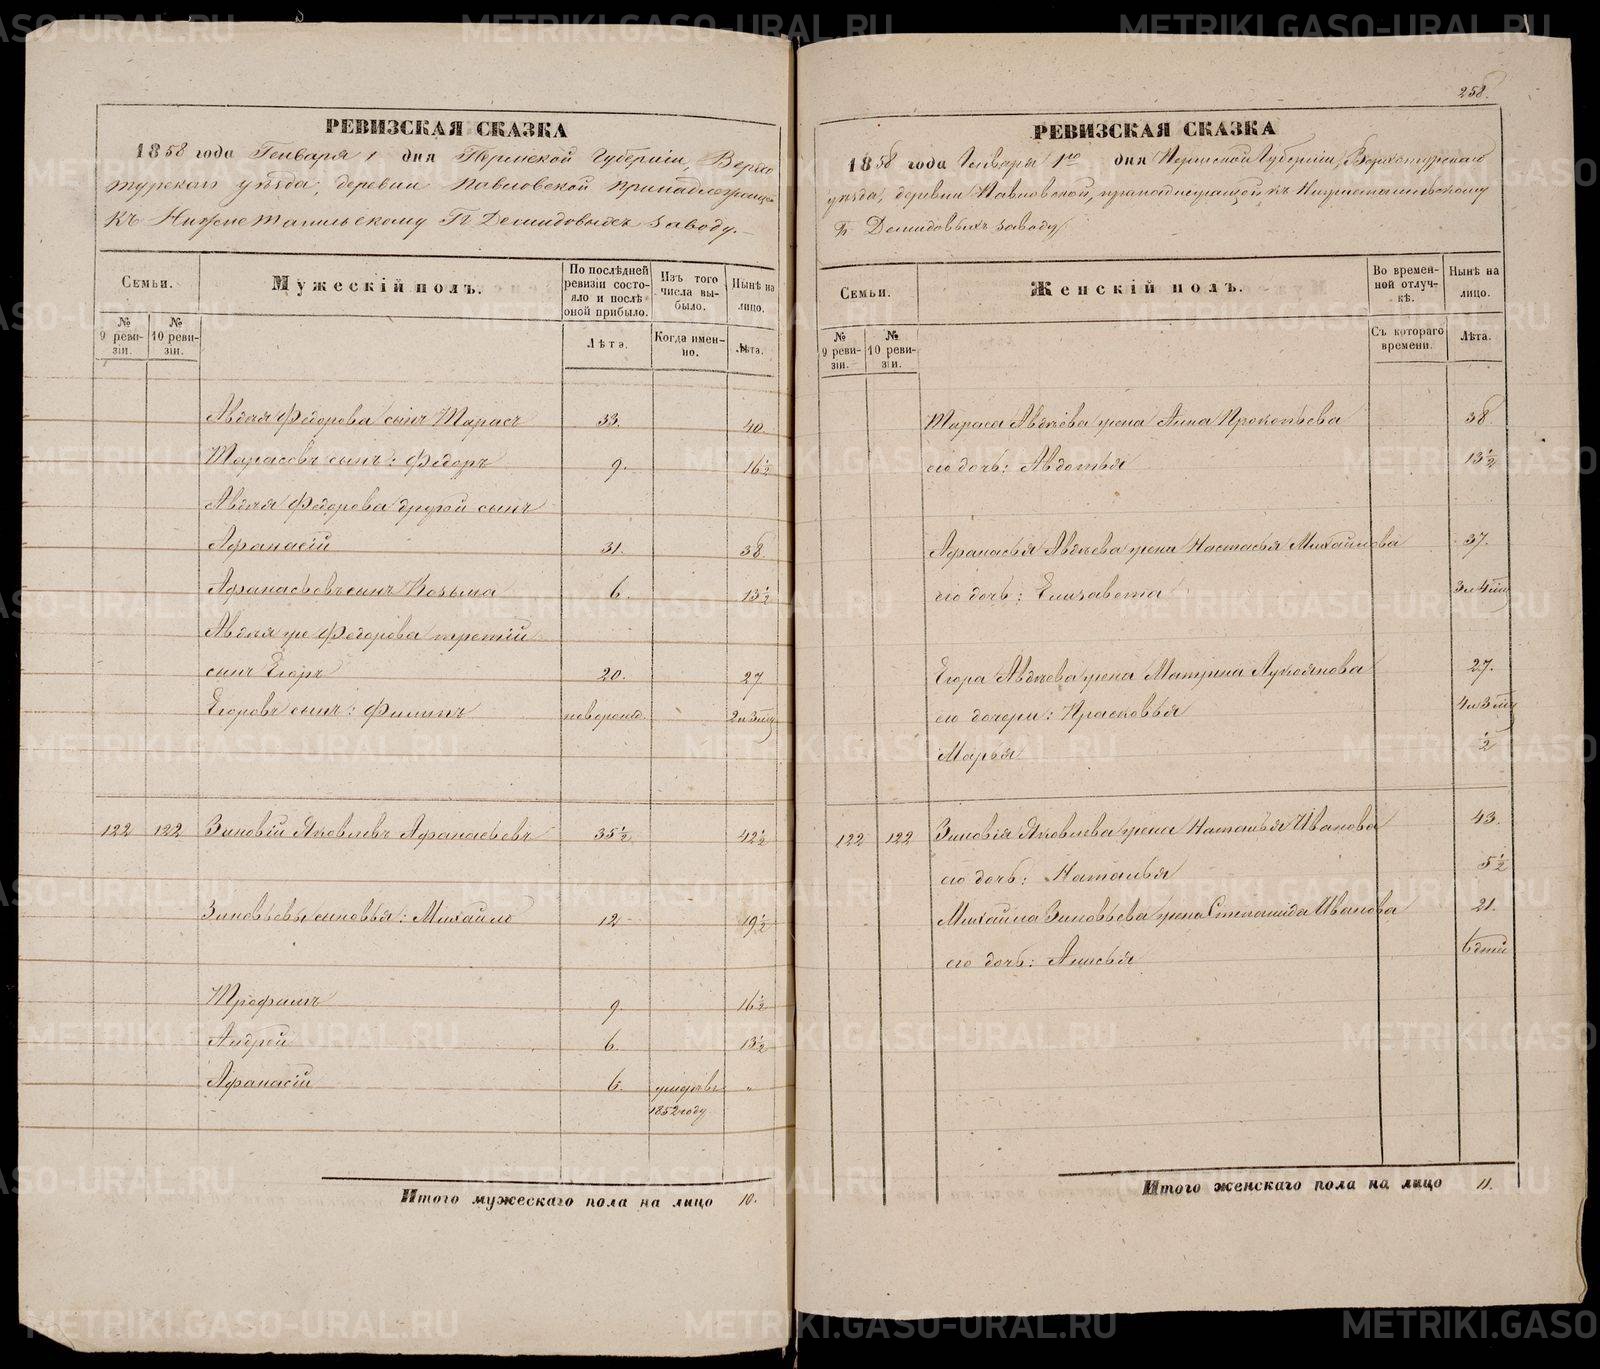 РЕВИЗСКАЯ СКАЗКА
1858 года Генваря 1 дня Пермской Губерніи, Верхо
турскаго уѣзда, деревни Павловской принадлежащей
къ Нижнетагильскому Гг. Демидовыхъ заводу.
Семьи.
Мужескій полъ.
По послѣдней ревизіи состояло и послѣ оной прибыло.
Изъ того числа выбыло.
Нынѣ на лицо.
№ 9 ревизіи.
№ 10 ревизіи.
Лѣта.
Когда именно.
Лѣта.
Авдѣя Федорова сынъ Тарасъ 33. 40.
Тарасовъ сынъ: Федоръ 9. 16½
Авдѣя Федорова другой сынъ
Афанасій 31. 38
Афанасьевъ сынъ Козьма 6. 13½
Авдѣя же Федорова третій
сынъ Егоръ 20. 27
Егоровъ сынъ: Филипъ новорожд. 2 и 3 мц
122 122 Зиновій Яковлевъ Афанасьевъ 35½ 42½
Зиновьевы сыновья: Михайло 12 19½
Трофимъ 9. 16½
Андрей 6. 13½
Афанасій 6. умеръ въ „
1852 году
Итого мужескаго пола на лицо 10.
258.
РЕВИЗСКАЯ СКАЗКА
1858 года Генваря 1го дня Пермской Губерніи, Верхотурскаго
уѣзда, деревни Павловской, принадлежащей къ Нижнетагильскому
Гг. Демидовыхъ заводу
Семьи.
Женскій полъ.
Во временной отлучкѣ.
Нынѣ на лицо.
№ 9 ревизіи.
№ 10 ревизіи.
Съ котораго времени.
Лѣта.
Тараса Авдѣева жена Анна Прокопьева 38.
его дочь: Авдотья 13½
Афанасья Авдѣева жена Настасья Михайлова 37.
его дочь: Елизавета 3 и 4 мц
Егора Авдѣева жена Матрина Лукоянова 27.
его дочери: Прасковья 4 и 3 мц
Марья ½
122 122 Зиновія Яковлева жена Наталья Иванова 43.
его дочь: Наталья 5½
Михайла Зиновьева жена Степанида Иванова 21.
его дочь: Анисья 6 дней
Итого женскаго пола на лицо 11.
METRIKI.GASO-URAL.RU